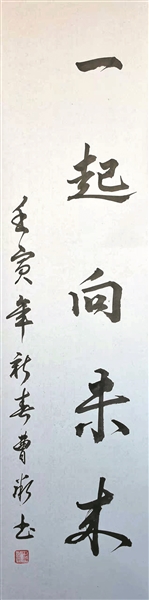 一起向未来
壬寅年新春曹书